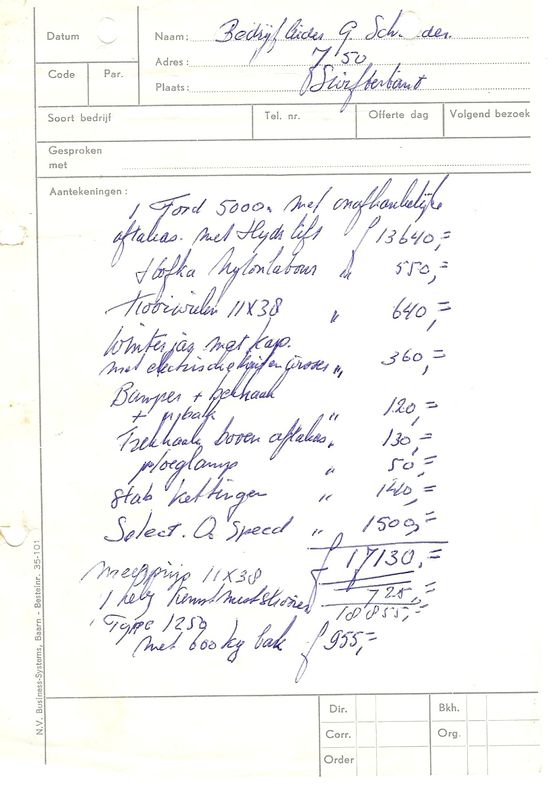 Datum
Naam: Bedrijfsleider G. Sch der.
Adres: 7 50
Code Par. Plaats: Swifterbant
Soort bedrijf Tel. nr. Offerte dag Volgend bezoek
Gesproken
met
Aantekeningen:
1 Ford 5000. met onafhankelijke
aftakas. met Hydr lift ƒ 13640,=
Hofka Nylonlabour " 550,=
Kooiwielen 11X38 " 640,=
Winterjas met kap.
met electrische " 360,=
Bumper +
+ bak " 120,=
Trekhaak boven aftakas " 130,=
ploeglamp 50,=
stab kettingen " 140,=
Select. O. Speed " 1500,=
ƒ 17130,=
meerprijs 11X38 725,=
1 kunstmeststrooier 18855,=
Type 1250
met 600 kg bak ƒ 955,=
Dir. Bkh.
Corr. Org.
Order
N.V. Business-Systems, Baarn - Bestelnr. 35-101